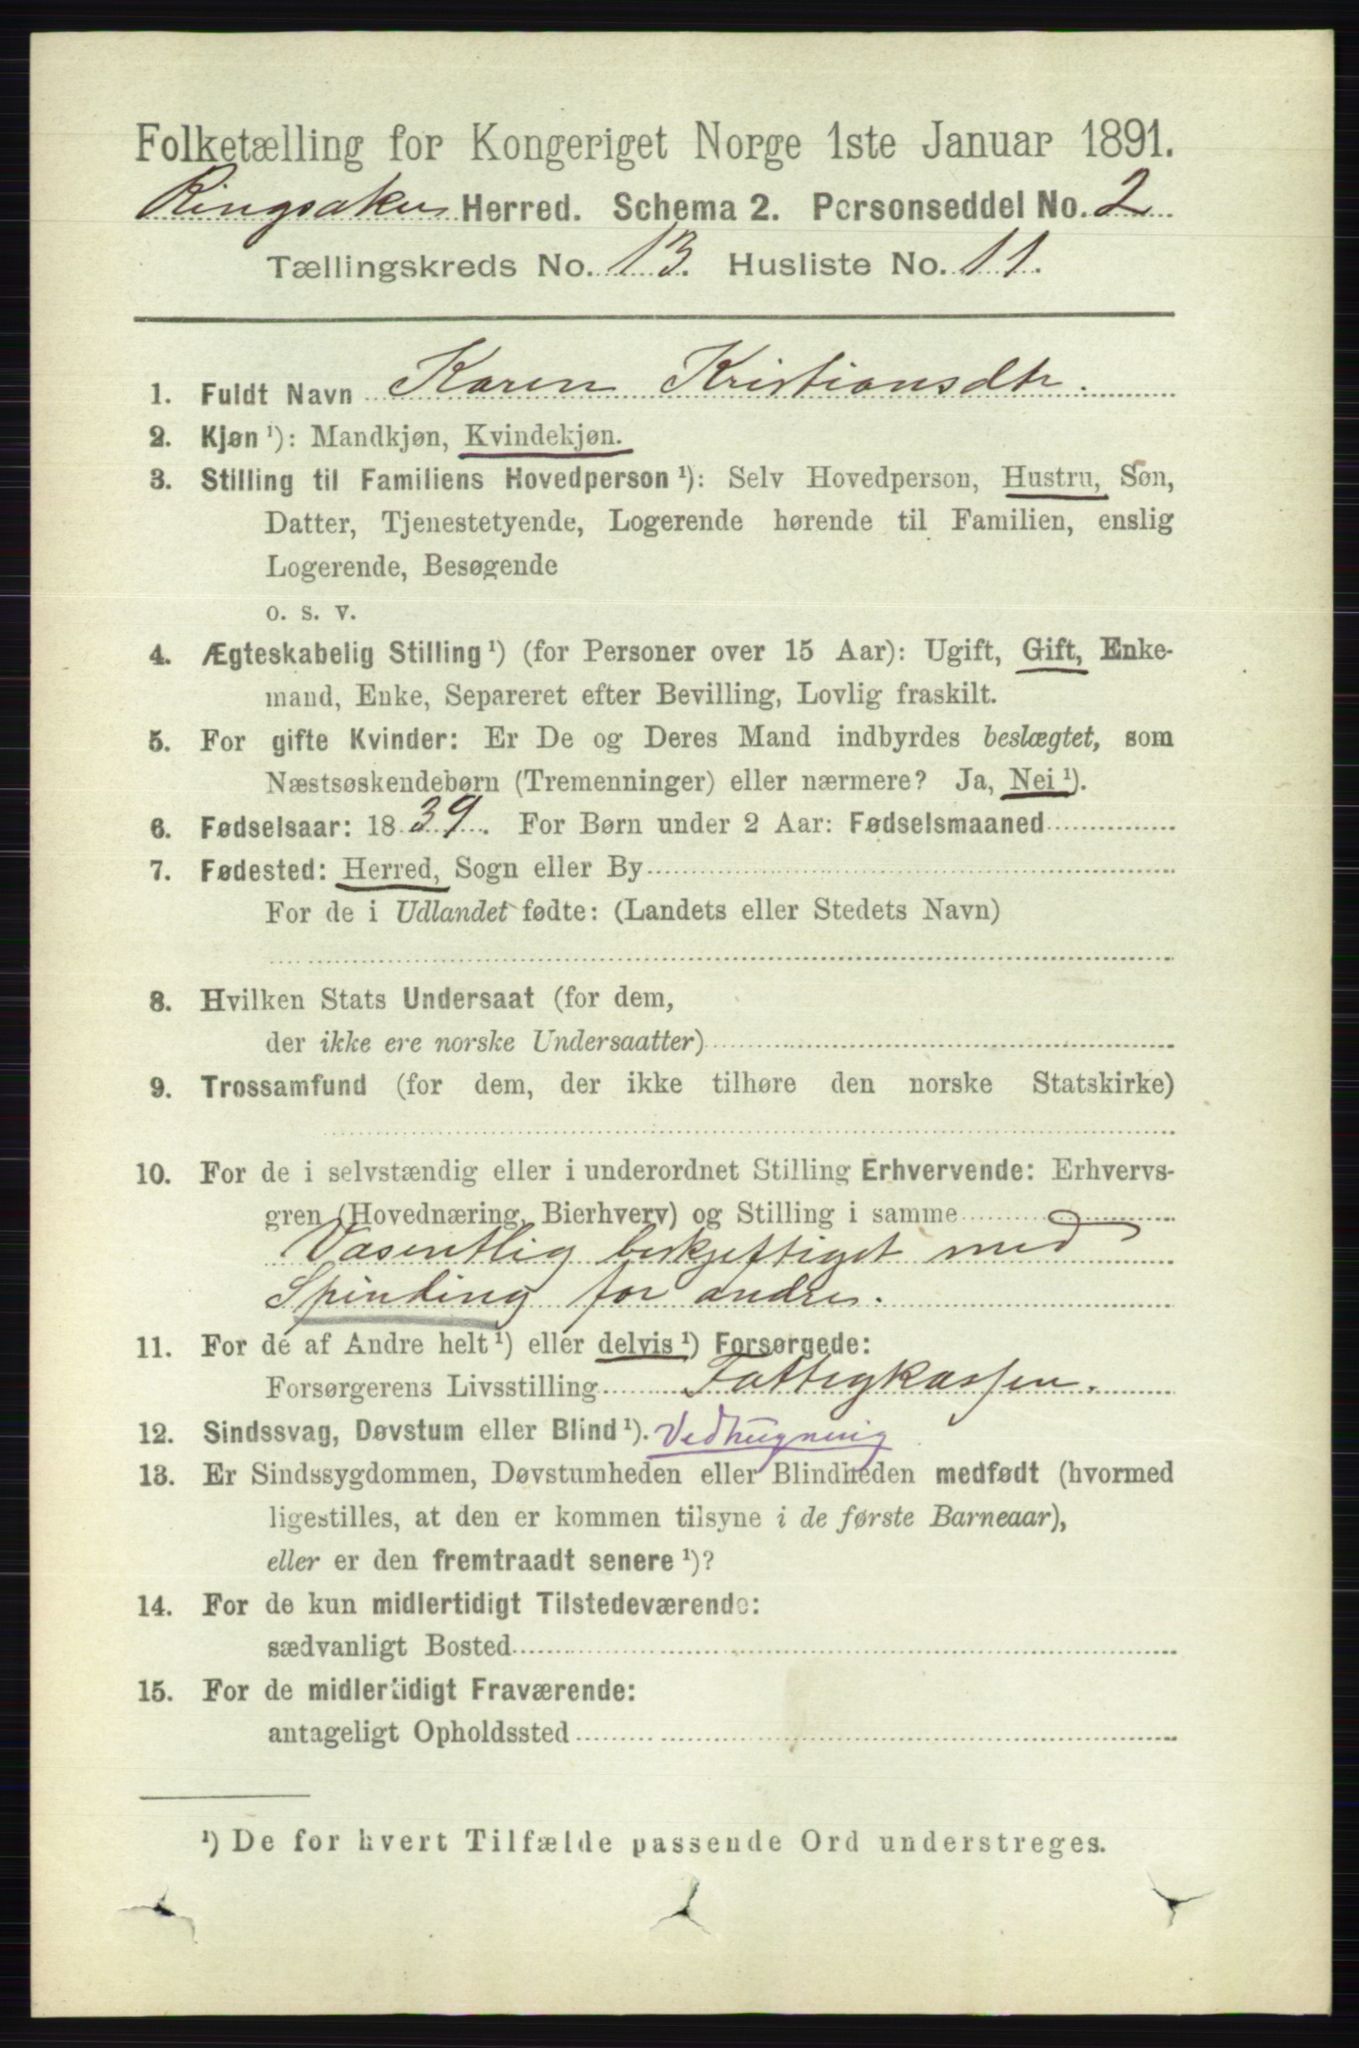 Folketælling for Kongeriget Norge 1ste Januar 1891.
Ringsaker Herred. Schema 2. Personseddel No. 2
Tællingskreds No. 13. Husliste No. 11.
1. Fuldt Navn Karen Kristiansdtr.
2. Kjøn ¹): Mandkjøn, Kvindekjøn.
3. Stilling til Familiens Hovedperson ¹): Selv Hovedperson, Hustru, Søn,
Datter, Tjenestetyende, Logerende hørende til Familien, enslig
Logerende, Besøgende
o. s. v.
4. Ægteskabelig Stilling ¹) (for Personer over 15 Aar): Ugift, Gift, Enke-
mand, Enke, Separeret efter Bevilling, Lovlig fraskilt.
5. For gifte Kvinder: Er De og Deres Mand indbyrdes beslægtet, som
Næstsøskendebørn (Tremenninger) eller nærmere? Ja, Nei ¹).
6. Fødselsaar: 1839. For Børn under 2 Aar: Fødselsmaaned
7. Fødested: Herred, Sogn eller By
For de i Udlandet fødte: (Landets eller Stedets Navn)
8. Hvilken Stats Undersaat (for dem,
der ikke ere norske Undersaatter)
9. Trossamfund (for dem, der ikke tilhøre den norske Statskirke)
10. For de i selvstændig eller i underordnet Stilling Erhvervende: Erhvervs-
gren (Hovednæring, Bierhverv) og Stilling i samme
Væsentlig beskjeftiget med
Spinding for andre.
11. For de af Andre helt ¹) eller delvis ¹) Forsørgede:
Forsørgerens Livsstilling Fattigkassen.
12. Sindssvag, Døvstum eller Blind ¹). Vedhugning
13. Er Sindssygdommen, Døvstumheden eller Blindheden medfødt (hvormed
ligestilles, at den er kommen tilsyne i de første Barneaar),
eller er den fremtraadt senere ¹)?
14. For de kun midlertidigt Tilstedeværende:
sædvanligt Bosted
15. For de midlertidigt Fraværende:
antageligt Opholdssted
¹) De for hvert Tilfælde passende Ord understreges.